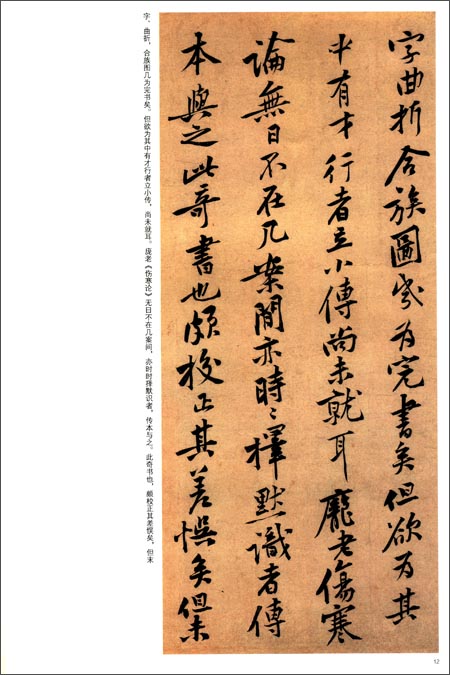 字曲折合族圖幾为完書矣但欲为其
中有才行者立小傳尚未就耳龐老傷寒
論無日不在几案間亦時〻擇默識者傳
本與之此奇書也頗校正其差悮矣但未
字、曲折，合族图几为完书矣。但欲为其中有才行者立小传，尚未就耳。庞老《伤寒论》无日不在几案间，亦时时择默识者，传本与之。此奇书也，颇校正其差悮矣。但未
12